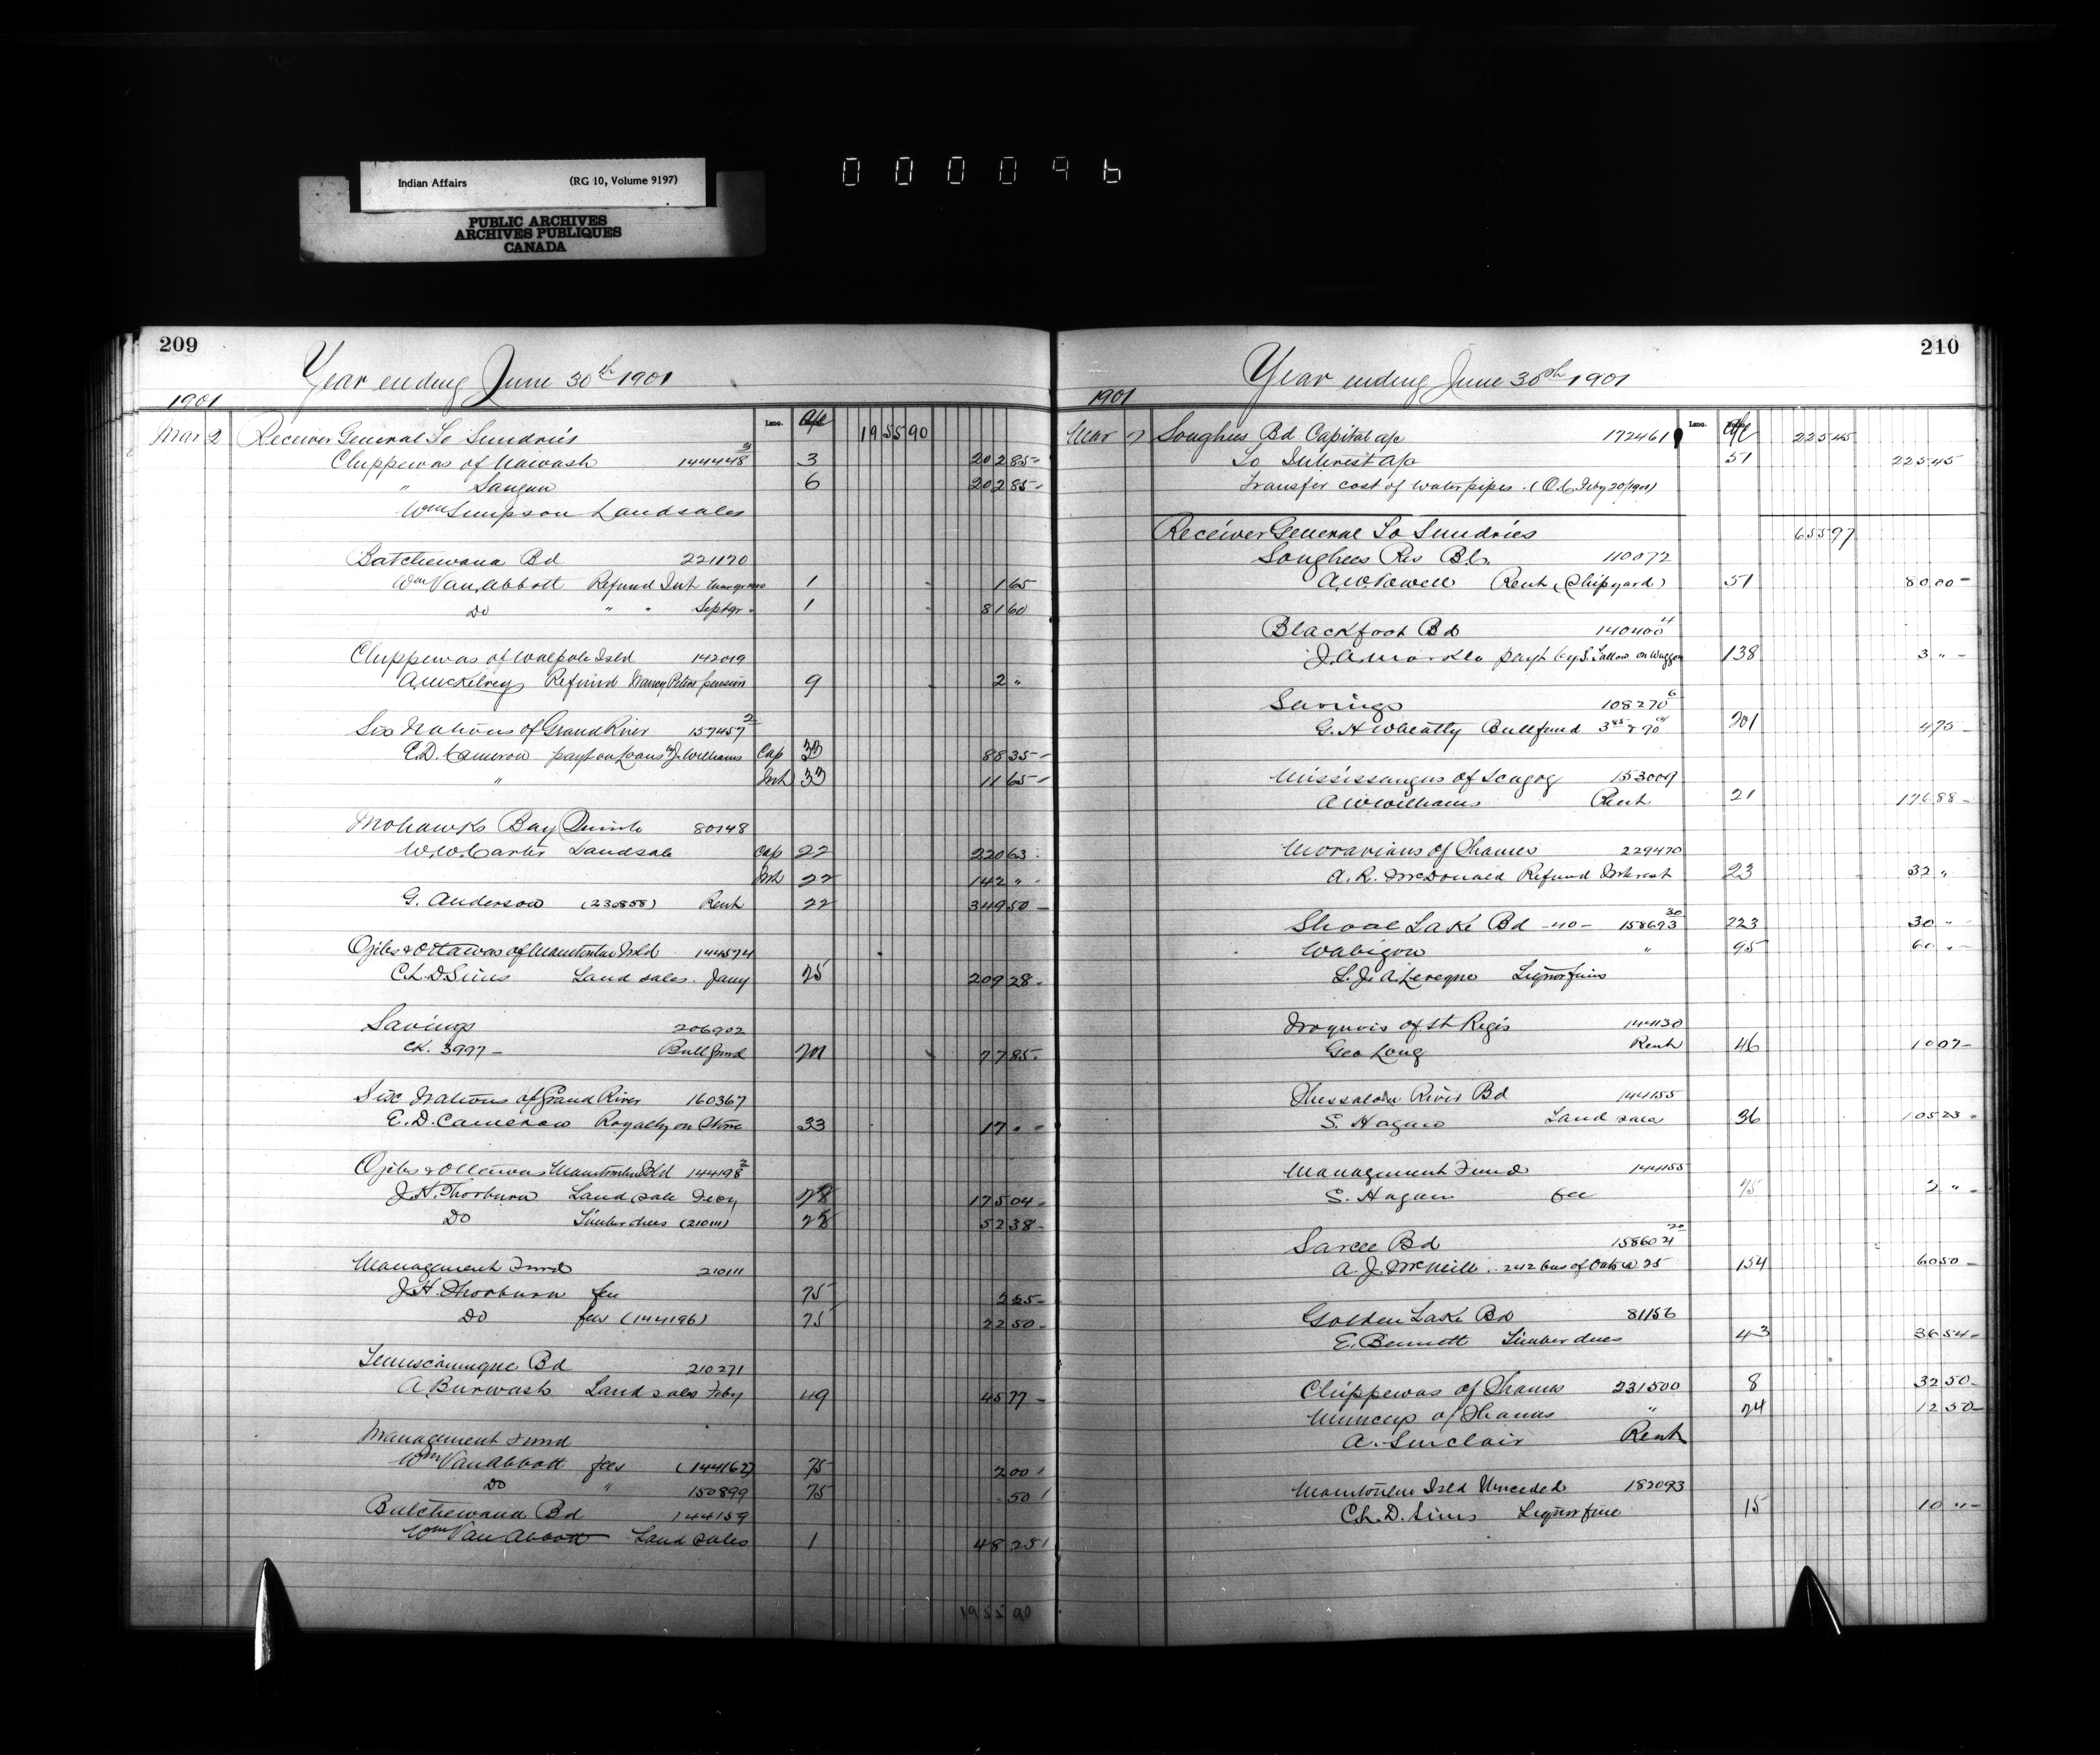 Indian Affairs (RG 10, Volume 9197)
PUBLIC ARCHIVES
ARCHIVES PUBLIQUES
CANADA
000096
209
Year ending June 30th 1901
1901
Mar 2 Receiver General To Sundries 1955 90
Chippewas of Nawash 144448 3/ 3 202 85
" Saugeen 6 202 85
Wm Simpson Landsales
Batchewana Bd 221170
Wm Van Abbott Refund Int 1 1 65
Do " " Septqr 1 81 60
Chippewas of Walpole Isld 142019
A. McKelvey Refund Nancy Peters pension 9 2 "
Six Nations of Grand River 157457 2/
E.D. Cameron payt on loans by J. Williams Cap 33 88 35
" Int 33 11 65
Mohawks Bay Quinte 80148
W.W. Carter Landsale Cap 22 220 63
Int 22 142 "
G. Anderson (230858) Rent 22 349 50
Ojibs & Ottawas of Manitoulin Isld 144574
C.L.D. Sims Land sales Jany 25 209 28
Savings 206902
CK. 3997 Bull fund 201 77 85
Six Nations of Grand River 160367
E.D. Cameron Royalty on Stone 33 17 "
Ojibs & Ottawas Manitoulin Isld 144198 2/
J.H. Thorburn Land sale Feby 28 175 04
Do Timber dues (210111) 28 52 38
Management Fund 210111
J.H. Thorburn fee 75 2 65
Do fees (144196) 75 22 50
Temiscamingue Bd 210271
A. Burwash Land sales Feby 49 45 77
Management Fund
Wm Van Abbott fees (144162) 75 2 00
Do " 150899 75 50
Batchewana Bd 144159
Wm Van Abbott Land sales 1 48 25
1955 90
210
Year ending June 30th 1901
1901
Mar 2 Songhees Bd Capital a/c 172461 225 45
To Interest a/c 51 225 45
Transfer cost of water pipes. (O.C. Feby 20/1901)
Receiver General To Sundries 655 97
Songhees Res B.C. 110072
A.W. Vowell Rent (Shipyard) 51 80 00
Blackfoot Bd 140400
J.A. Markle payt by on Waggon 138 3 "
Savings 108270 6
G.H. Wheatly Bullfund 3 85 & 90 201 4 75
Mississaugas of Scugog 153009
A.W. Williams Rent 21 176 88
Moravians of Thames 229470
A.R. McDonald Refund Interest 23 32 "
Shoal Lake Bd -40- 158693 30 223 30 "
Wabigon " 95 60 "
L.J.A. Leveque Liquor fines
Iroquois of St Regis 144130
Geo Long Rent 46 10 07
Thessalon River Bd 144155
S. Hagan Land sales 36 105 23
Management Fund 144155
S. Hagan fee 75 2 "
Sarcee Bd 158604 20
A.J. McNeill 242 bus of Oats @ 25 154 60 50
Golden Lake Bd 81156
E. Bennett Timber dues 43 36 54
Chippewas of Thames 231500 8 32 50
Munceys of Thames " 24 12 50
A. Sinclair Rent
Manitoulin Isld Unceded 182093
C.L.D. Sims Liquor fine 15 10 "